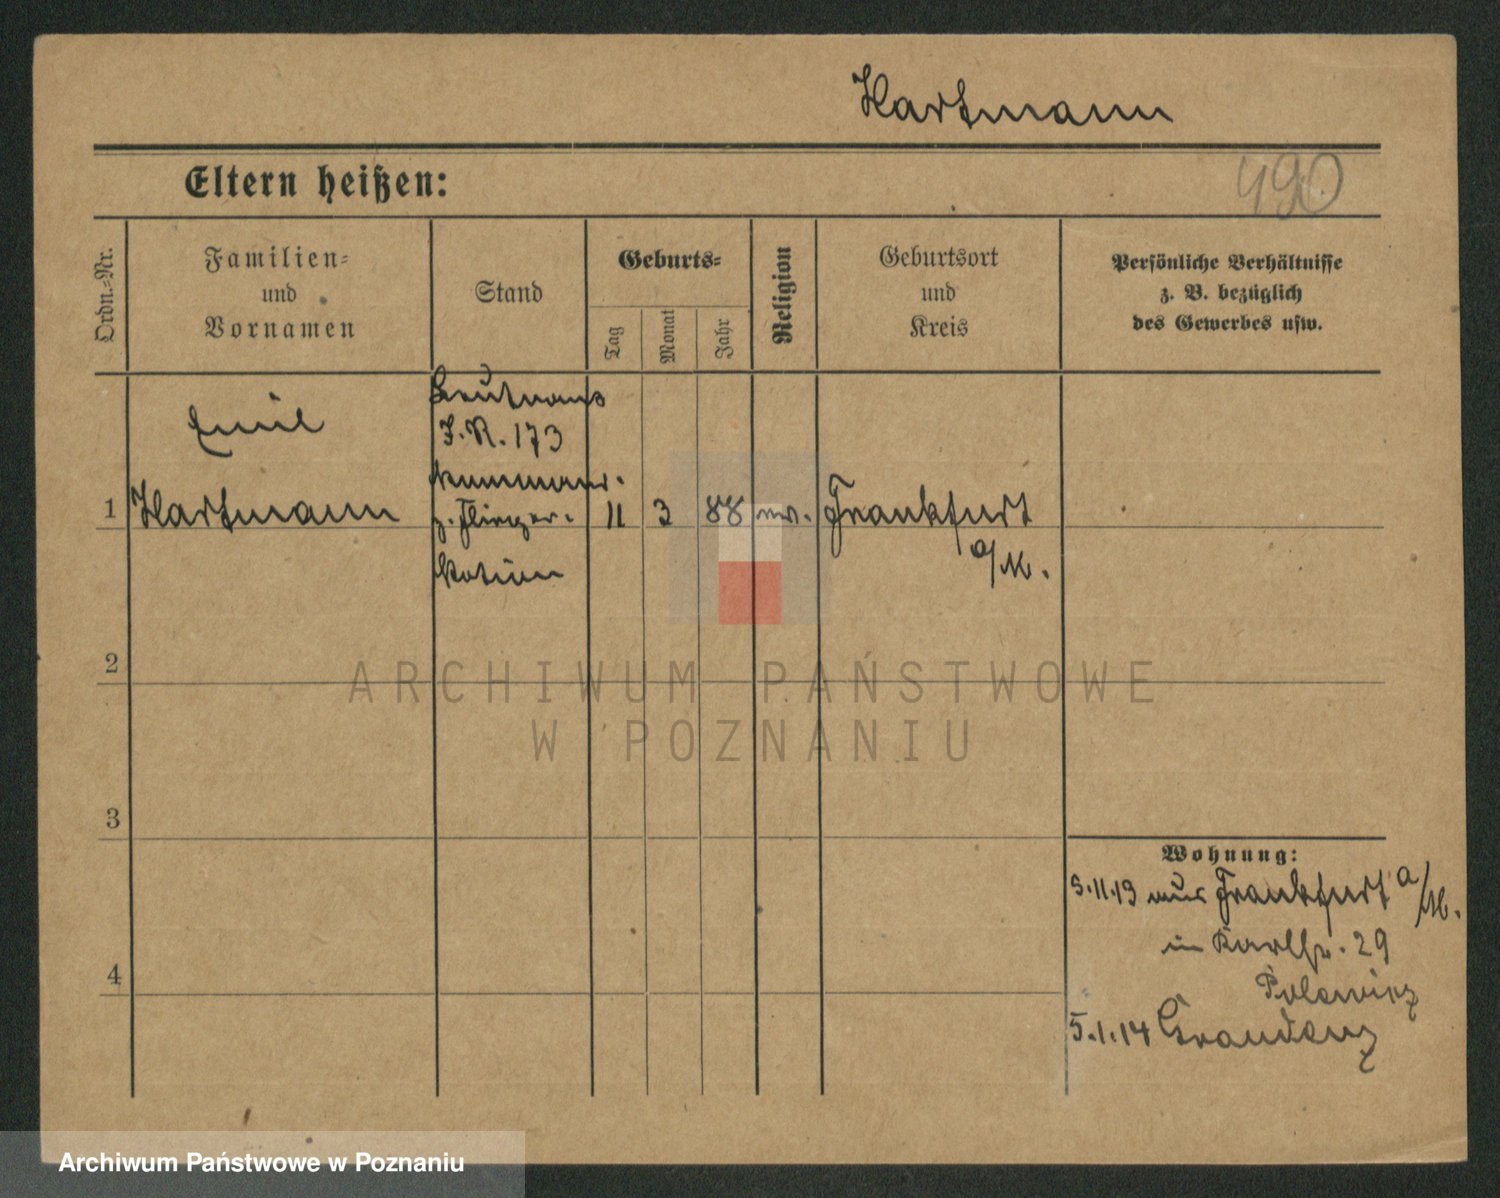 Hartmann
Eltern heißen:
490
Ordn.-Nr.
Familien-
und
Vornamen
Stand
Geburts-
Tag
Monat
Jahr
Religion
Geburtsort
und
Kreis
Persönliche Verhältnisse
z. B. bezüglich
des Gewerbes usw.
Emil
Leutnant
J.R. 173
kommand.
1 Hartmann z. Flieger- 11 3 88 ev. Frankfurt
a/M.
station
2
ARCHIWUM PAŃSTWOWE
W POZNANIU
3
Wohnung:
5.11.13 aus Frankfurt a/M.
in Karlstr. 29
4
5.1.14 Graudenz
Archiwum Państwowe w Poznaniu